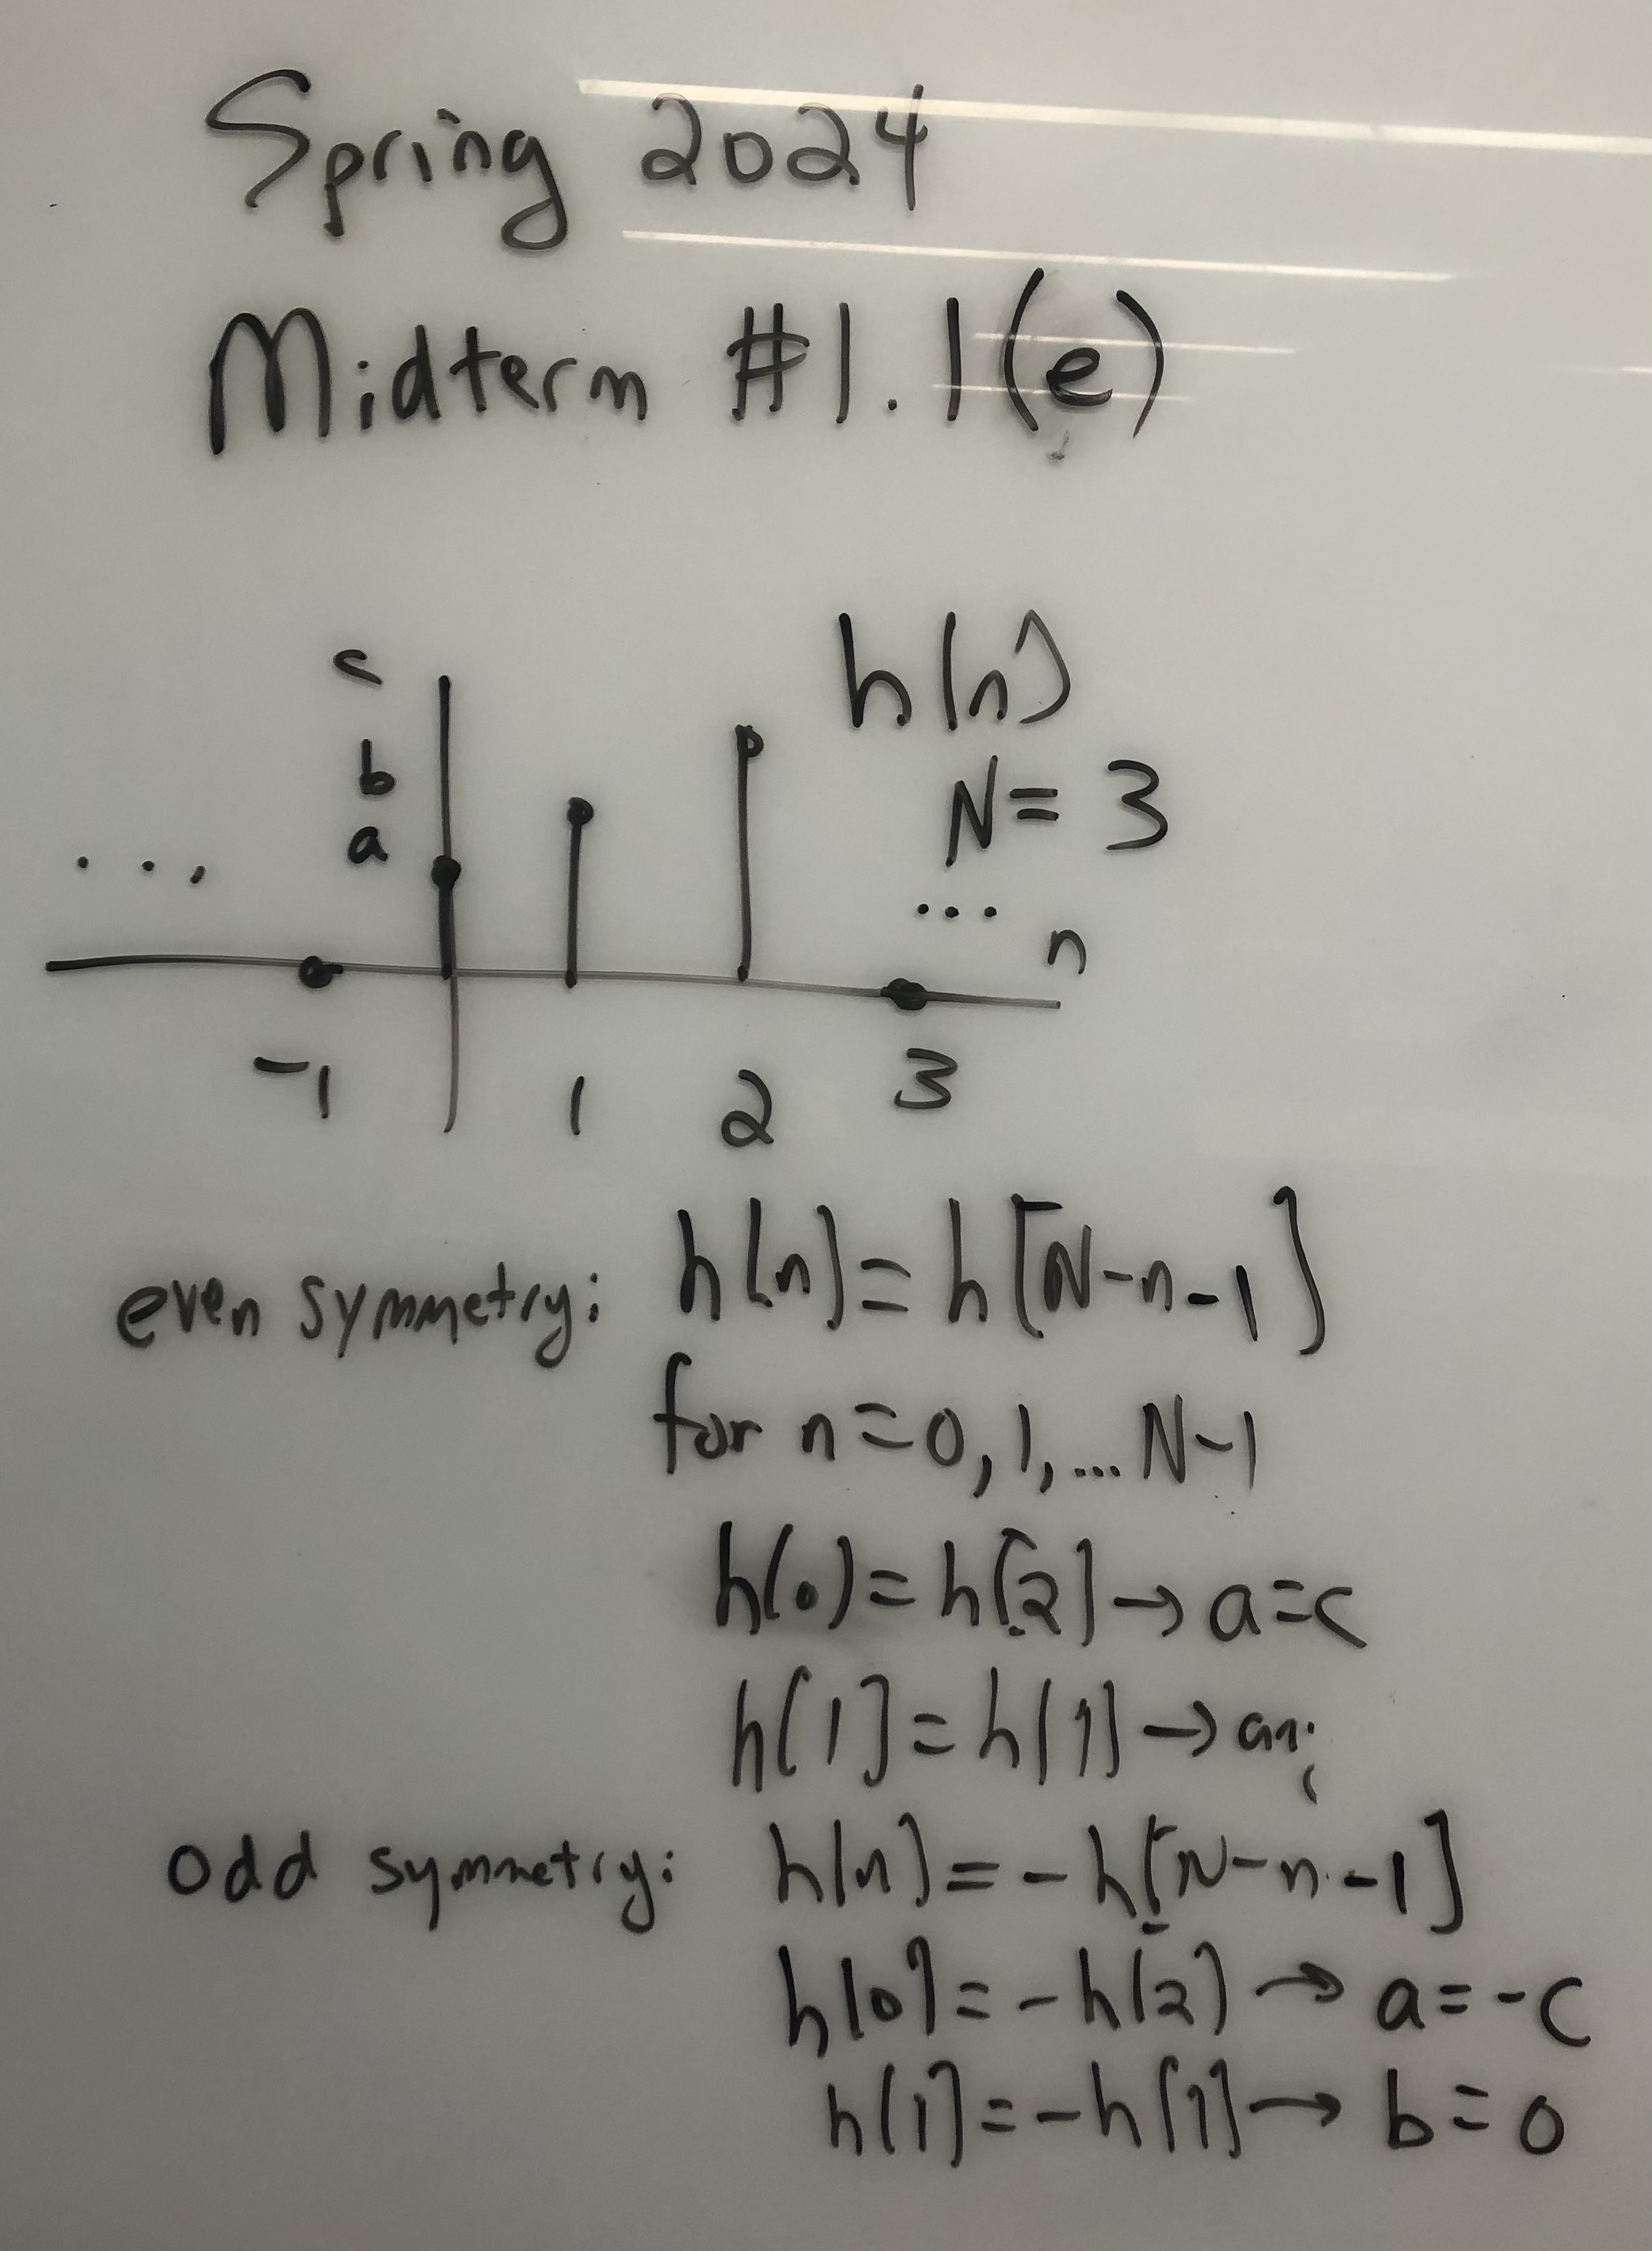 Spring 2024
Midterm #1.1(e)
c
h[n]
b
N = 3
a
...
...
n
-1 1 2 3
even symmetry: h[n] = h[N-n-1]
for n=0,1,... N-1
h(0) = h[2] → a=c
h[1] = h[1] →
odd symmetry: h[n] = -h[N-n-1]
h[0] = -h(2) → a=-c
h[1] = -h[1] → b=0